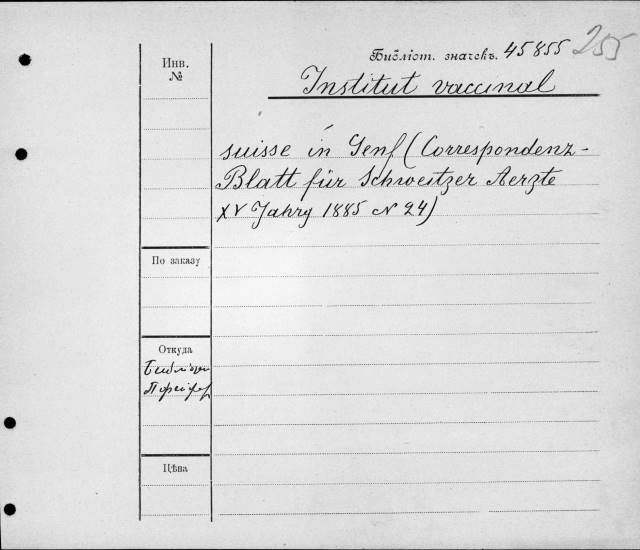 Библіот. значекъ. 45855 255
Инв.
№
Institut vaccinal
suisse in Genf (Correspondenz-
Blatt für Schweitzer Aerzte
XV Jahrg 1885 N 24)
По заказу
Откуда
Цѣна